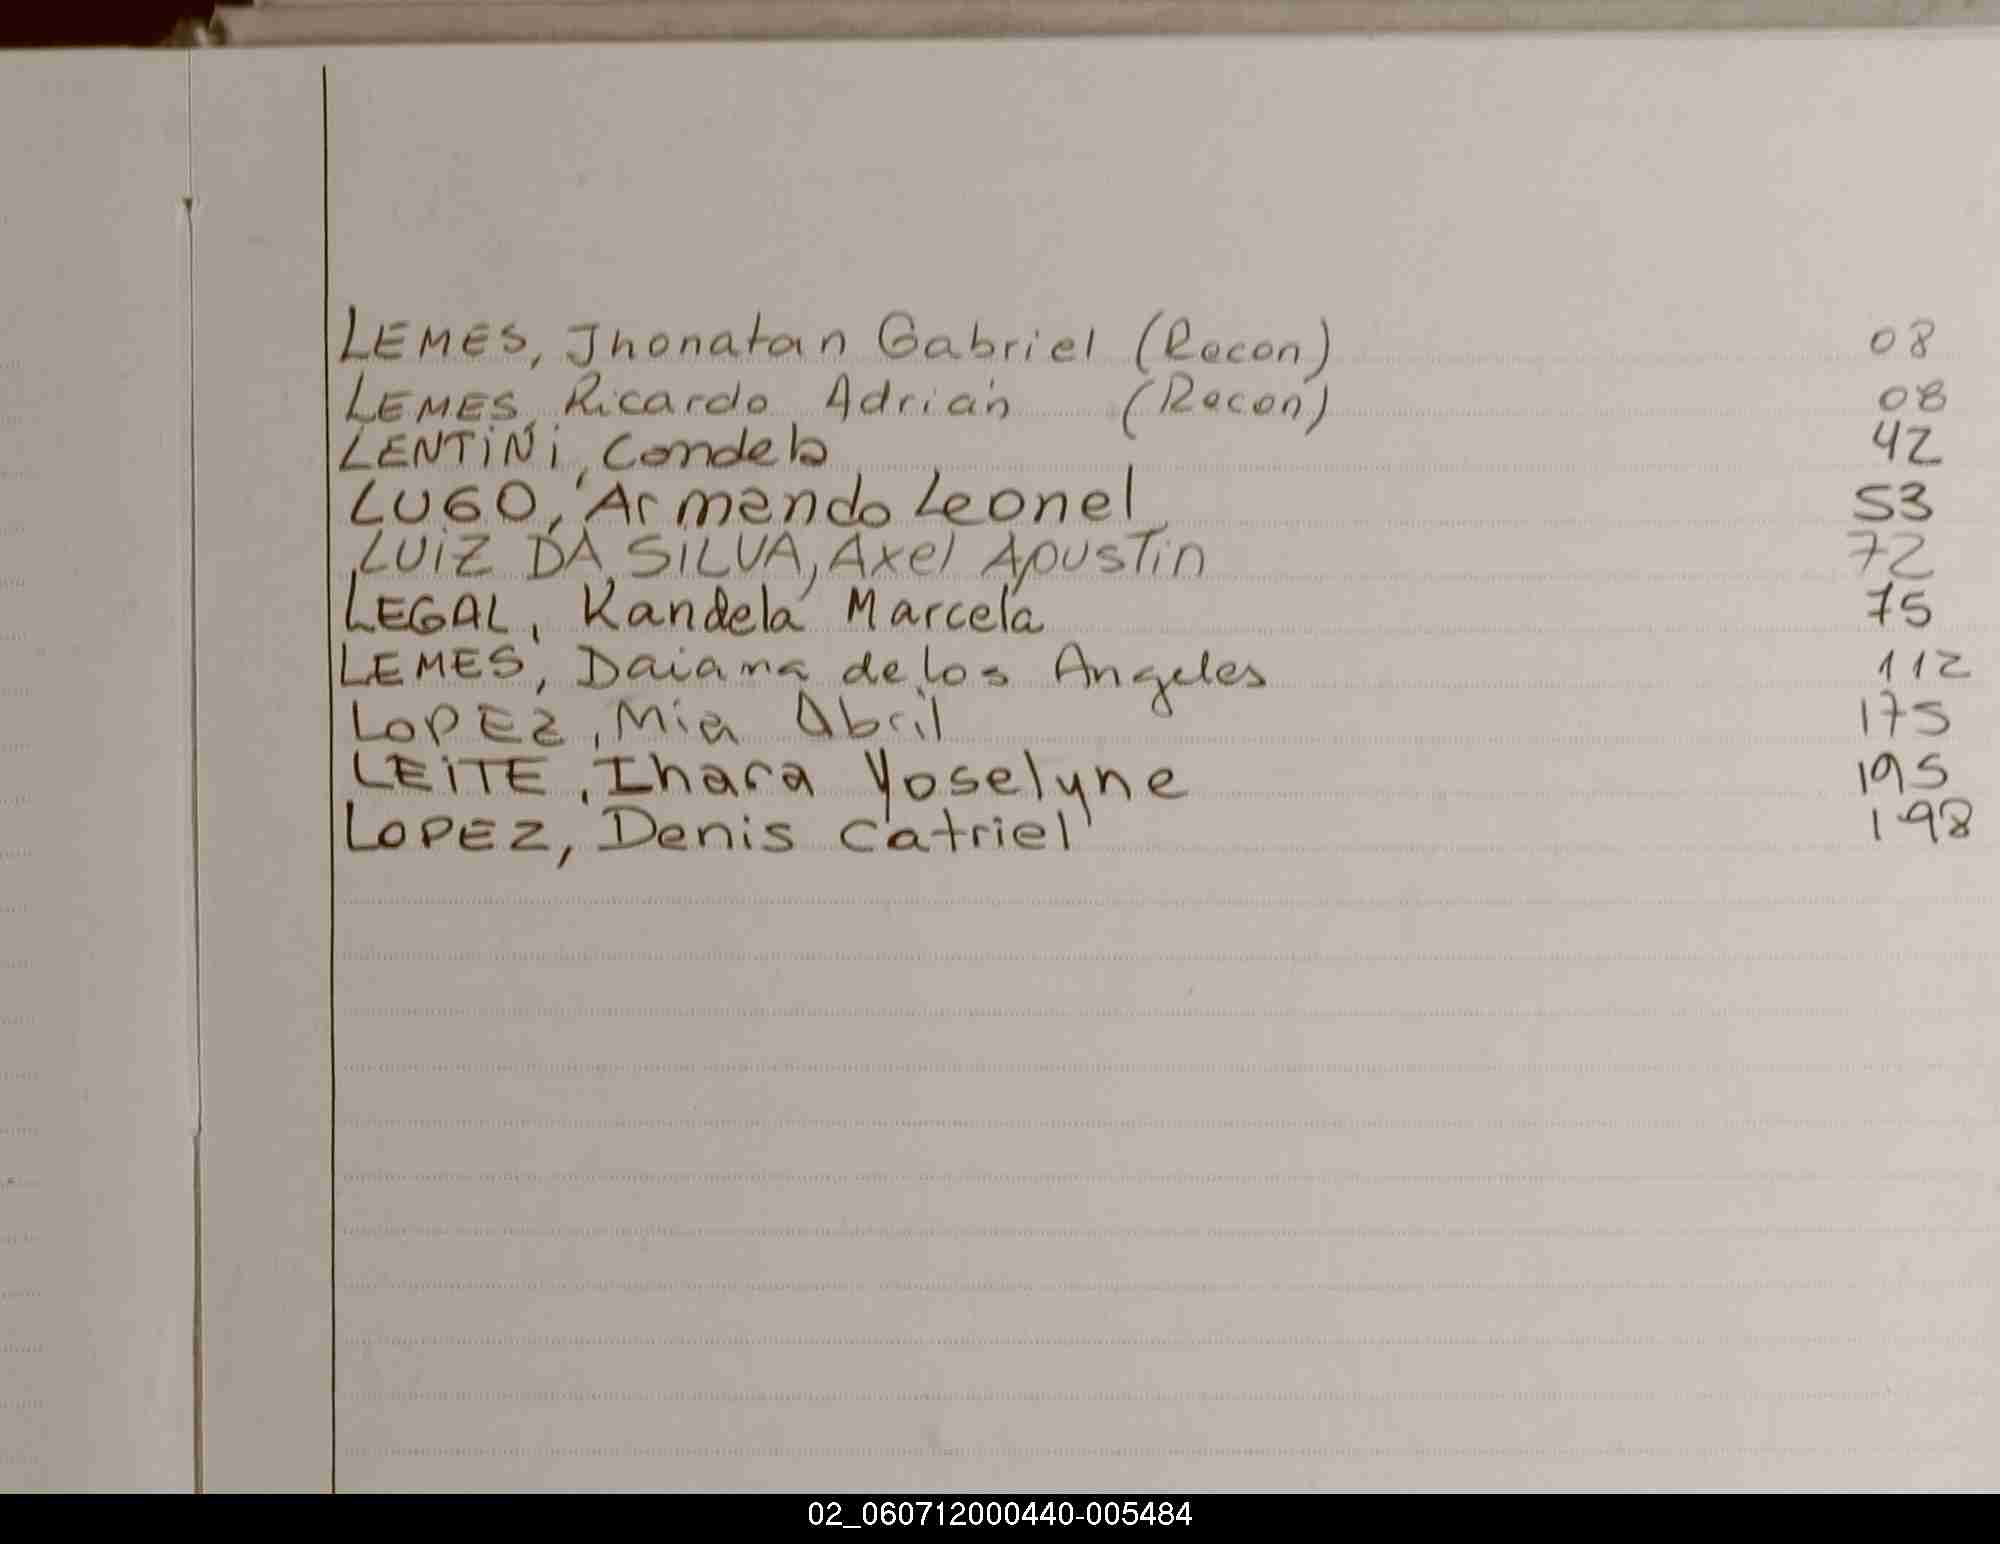 LEMES, Jhonatan Gabriel (Recon) 08
LEMES, Ricardo Adrian (Recon) 08
LENTINI, Candela 42
LUGO, Armando Leonel 53
LUIZ DA SILVA, Axel Agustin 72
LEGAL, Kandela Marcela 75
LEMES, Daiana de los Angeles 112
LOPEZ, Mia Abril 175
LEITE, Ihara Yoselyne 195
LOPEZ, Denis Catriel 198
02_060712000440-005484